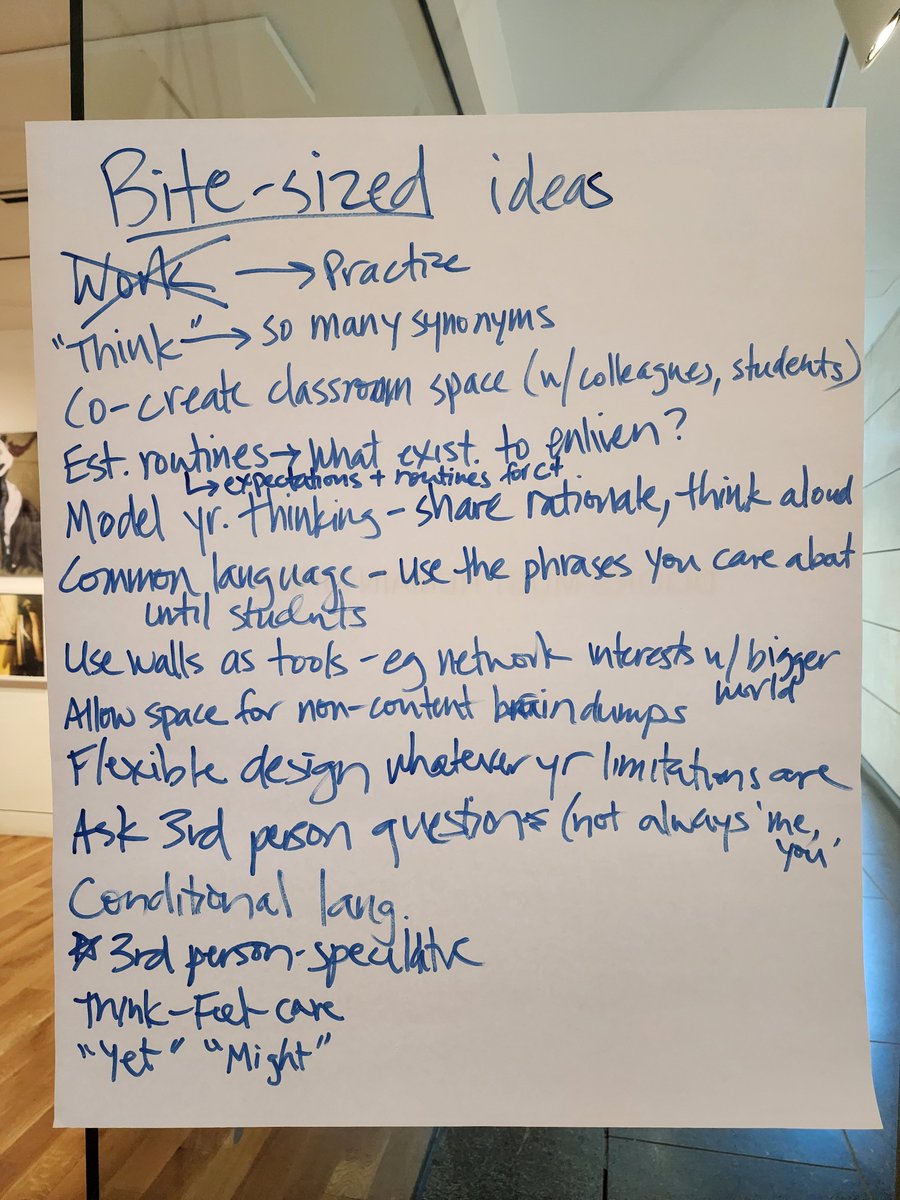 Bite-sized ideas
Work → Practice
"Think" → so many synonyms
Co-create classroom space (w/colleagues, students)
Est. routines → What exist. to enliven?
↳ expectations + routines for ct
Model yr. thinking - share rationale, think aloud
Common language - use the phrases you care about
until students
Use walls as tools - eg network interests w/ bigger
world
Allow space for non-content brain dumps
Flexible design whatever yr limitations are
Ask 3rd person questions (not always 'me,
you'
Conditional lang.
☆ 3rd person-speculative
Think-Feel-care
"Yet" "Might"